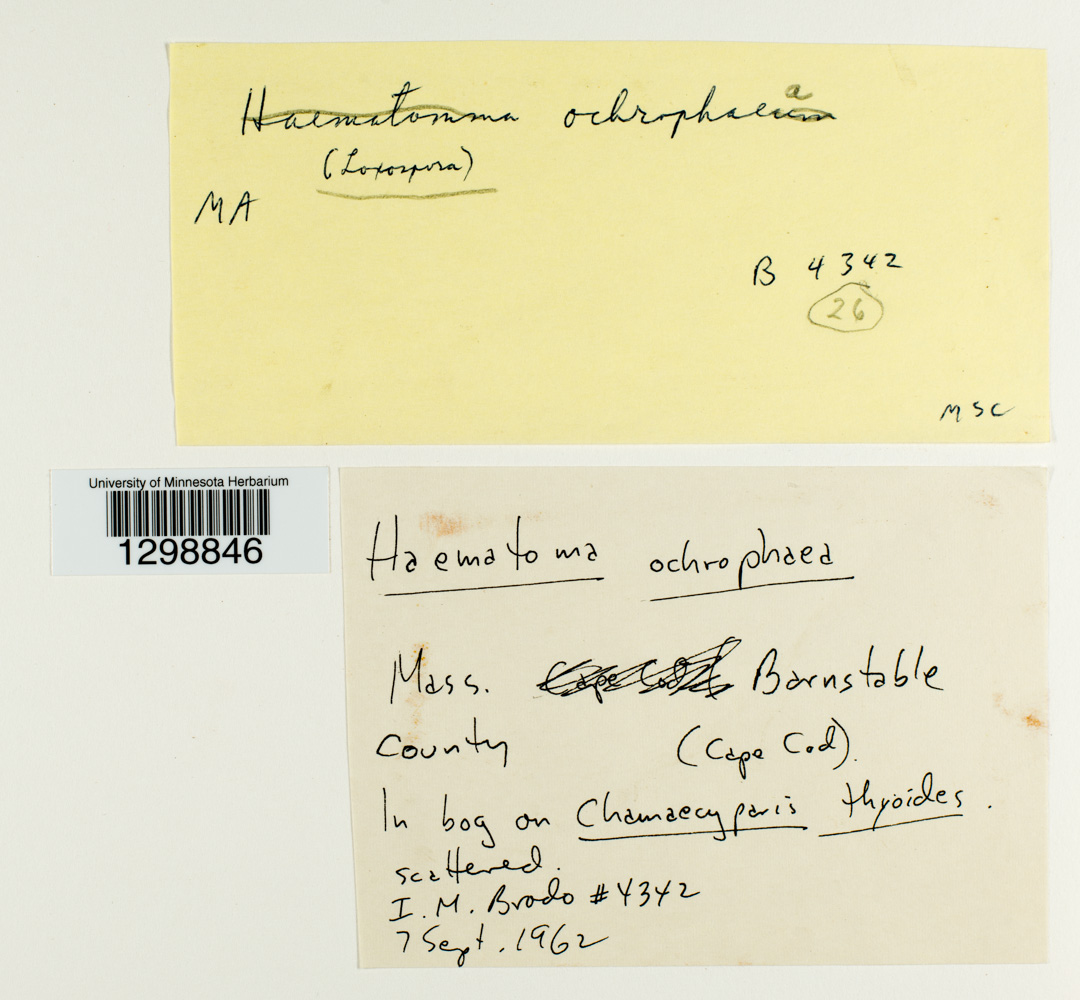 Haematomma ochrophaeum a
(Loxospora)
MA
B 4342
26
MSC
University of Minnesota Herbarium
1298846
Haematoma ochrophaea
Mass. Cape Cod Barnstable
County (Cape Cod).
In bog on Chamaecyparis thyoides.
scattered.
I. M. Brodo #4342
7 Sept. 1962